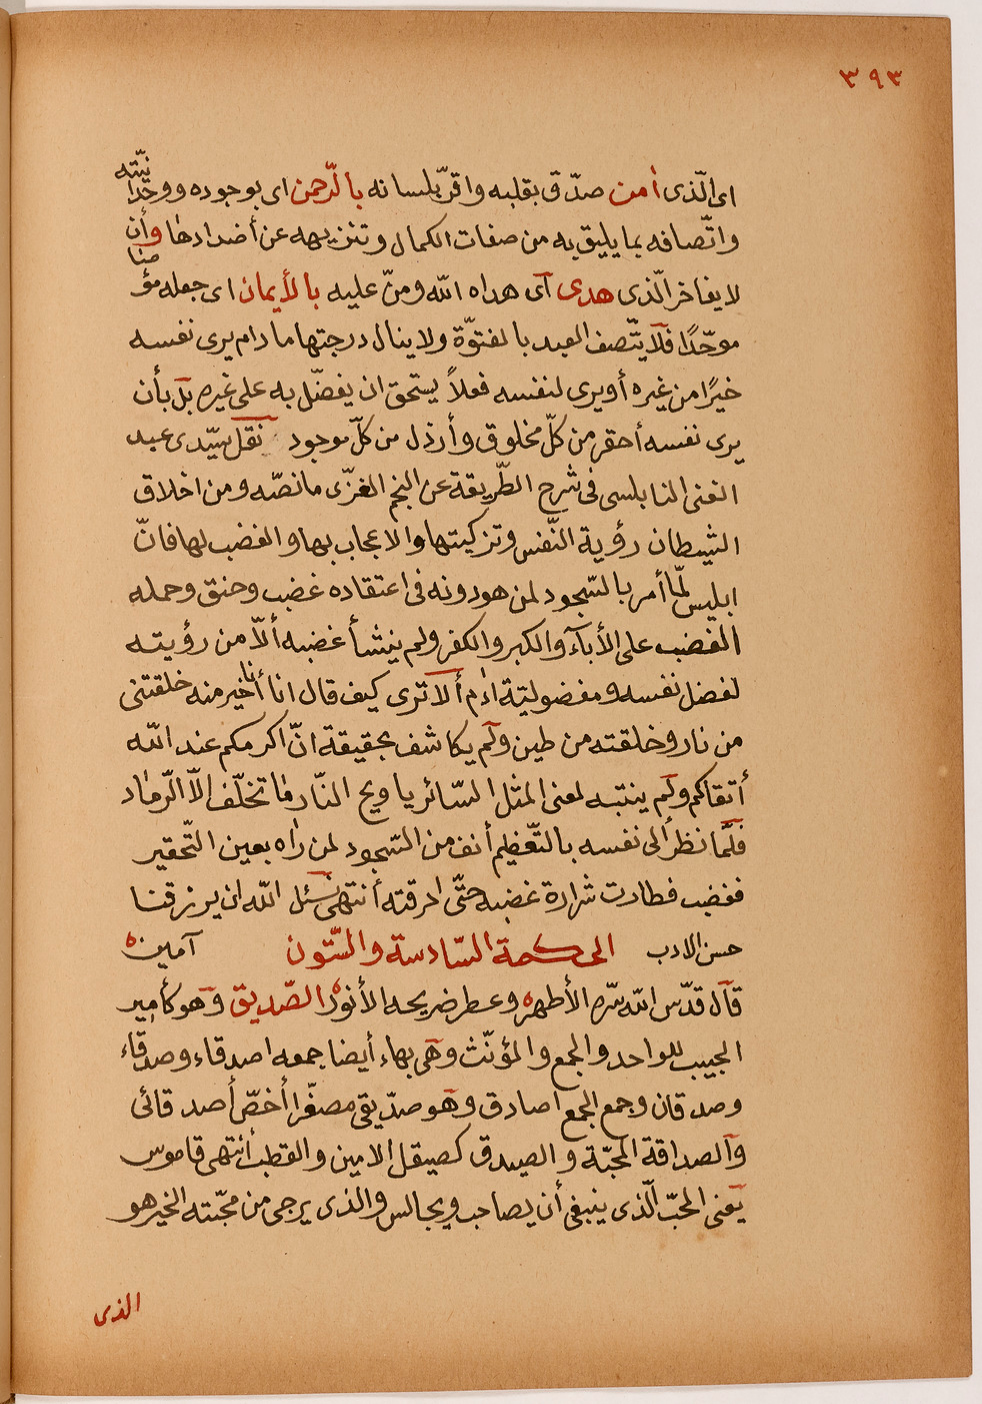 ٣٩٣
اى الّذى أمن صدّق بقلبه واقرّ بلسانه بالرّحمن اى بوجوده ووحدانيّته
واتّصافه بما يليق به من صفات الكمال وتنزيهه عن أضدادها وأن
لا يفاخر الّذى هدى آى هداه الله ومنّ عليه بالأيمان اى جعله مؤمنا
موحّدًا فلا يتّصف العبد بالفتوّة ولا ينال درجتها ما دام يرى نفسه
خيرًا من غيره أو يرى لنفسه فعلاً يستحق ان يفضّل به على غيره بل بأن
يرى نفسه أحقر من كلّ مخلوق وأرذل من كلّ موجود نقل سيّدى عبد
الغنى النابلسى فى شرح الطّريقة عن النجم الغزّى ما نصّه ومن اخلاق
الشيطان رؤية النّفس وتزكيتها والاعجاب بها والغضب لها فانّ
ابليس لمّا أمر بالسّجود لمن هو دونه فى اعتقاده غضب وحنق وحمله
الغضب على الأباء والكبر والكفر ولم ينشأ غضبه ألاّ من رؤيته
لفضل نفسه ومفضولية اٰدم ألا ترى كيف قال انا أنا خير منه خلقتنى
من نار وخلقته من طين ولم يكاشف بحقيقة انّ اكرمكم عند الله
أتقاكم ولم ينتبه لمعنى المثل السّائر يا ويح النّار ما تخلّف الاّ الرّماد
فلمّا نظر ألى نفسه بالتّعظيم أنف من السّجود لمن رٰاه بعين التّحقير
فغضب فطارت شرارة غضبه حتّى احرقته أنتهى نسئل الله ان يرزقنا
حسن الادب الحكمة السّادسة والسّتون آمين
قال قدّس الله سرّه الأطهر وعطر ضريحه الأنور الصّديق وهو كأمير
الحبيب للواحد والجمع والمؤنّث وهى بهاء أيضا جمعه اصدقاء وصدقاء
وصدقان وجمع الجمع اصادق وهو صدّيقى مصغّرا أخصّ أصدقائى
والصداقة المحبّة والصيدق كصيقل الامين والقطب أنتهى قاموس
يعنى المحبّ الّذى ينبغى أن يصاحب ويجالس والذى يرجى من محبّته الخير هو
الذى